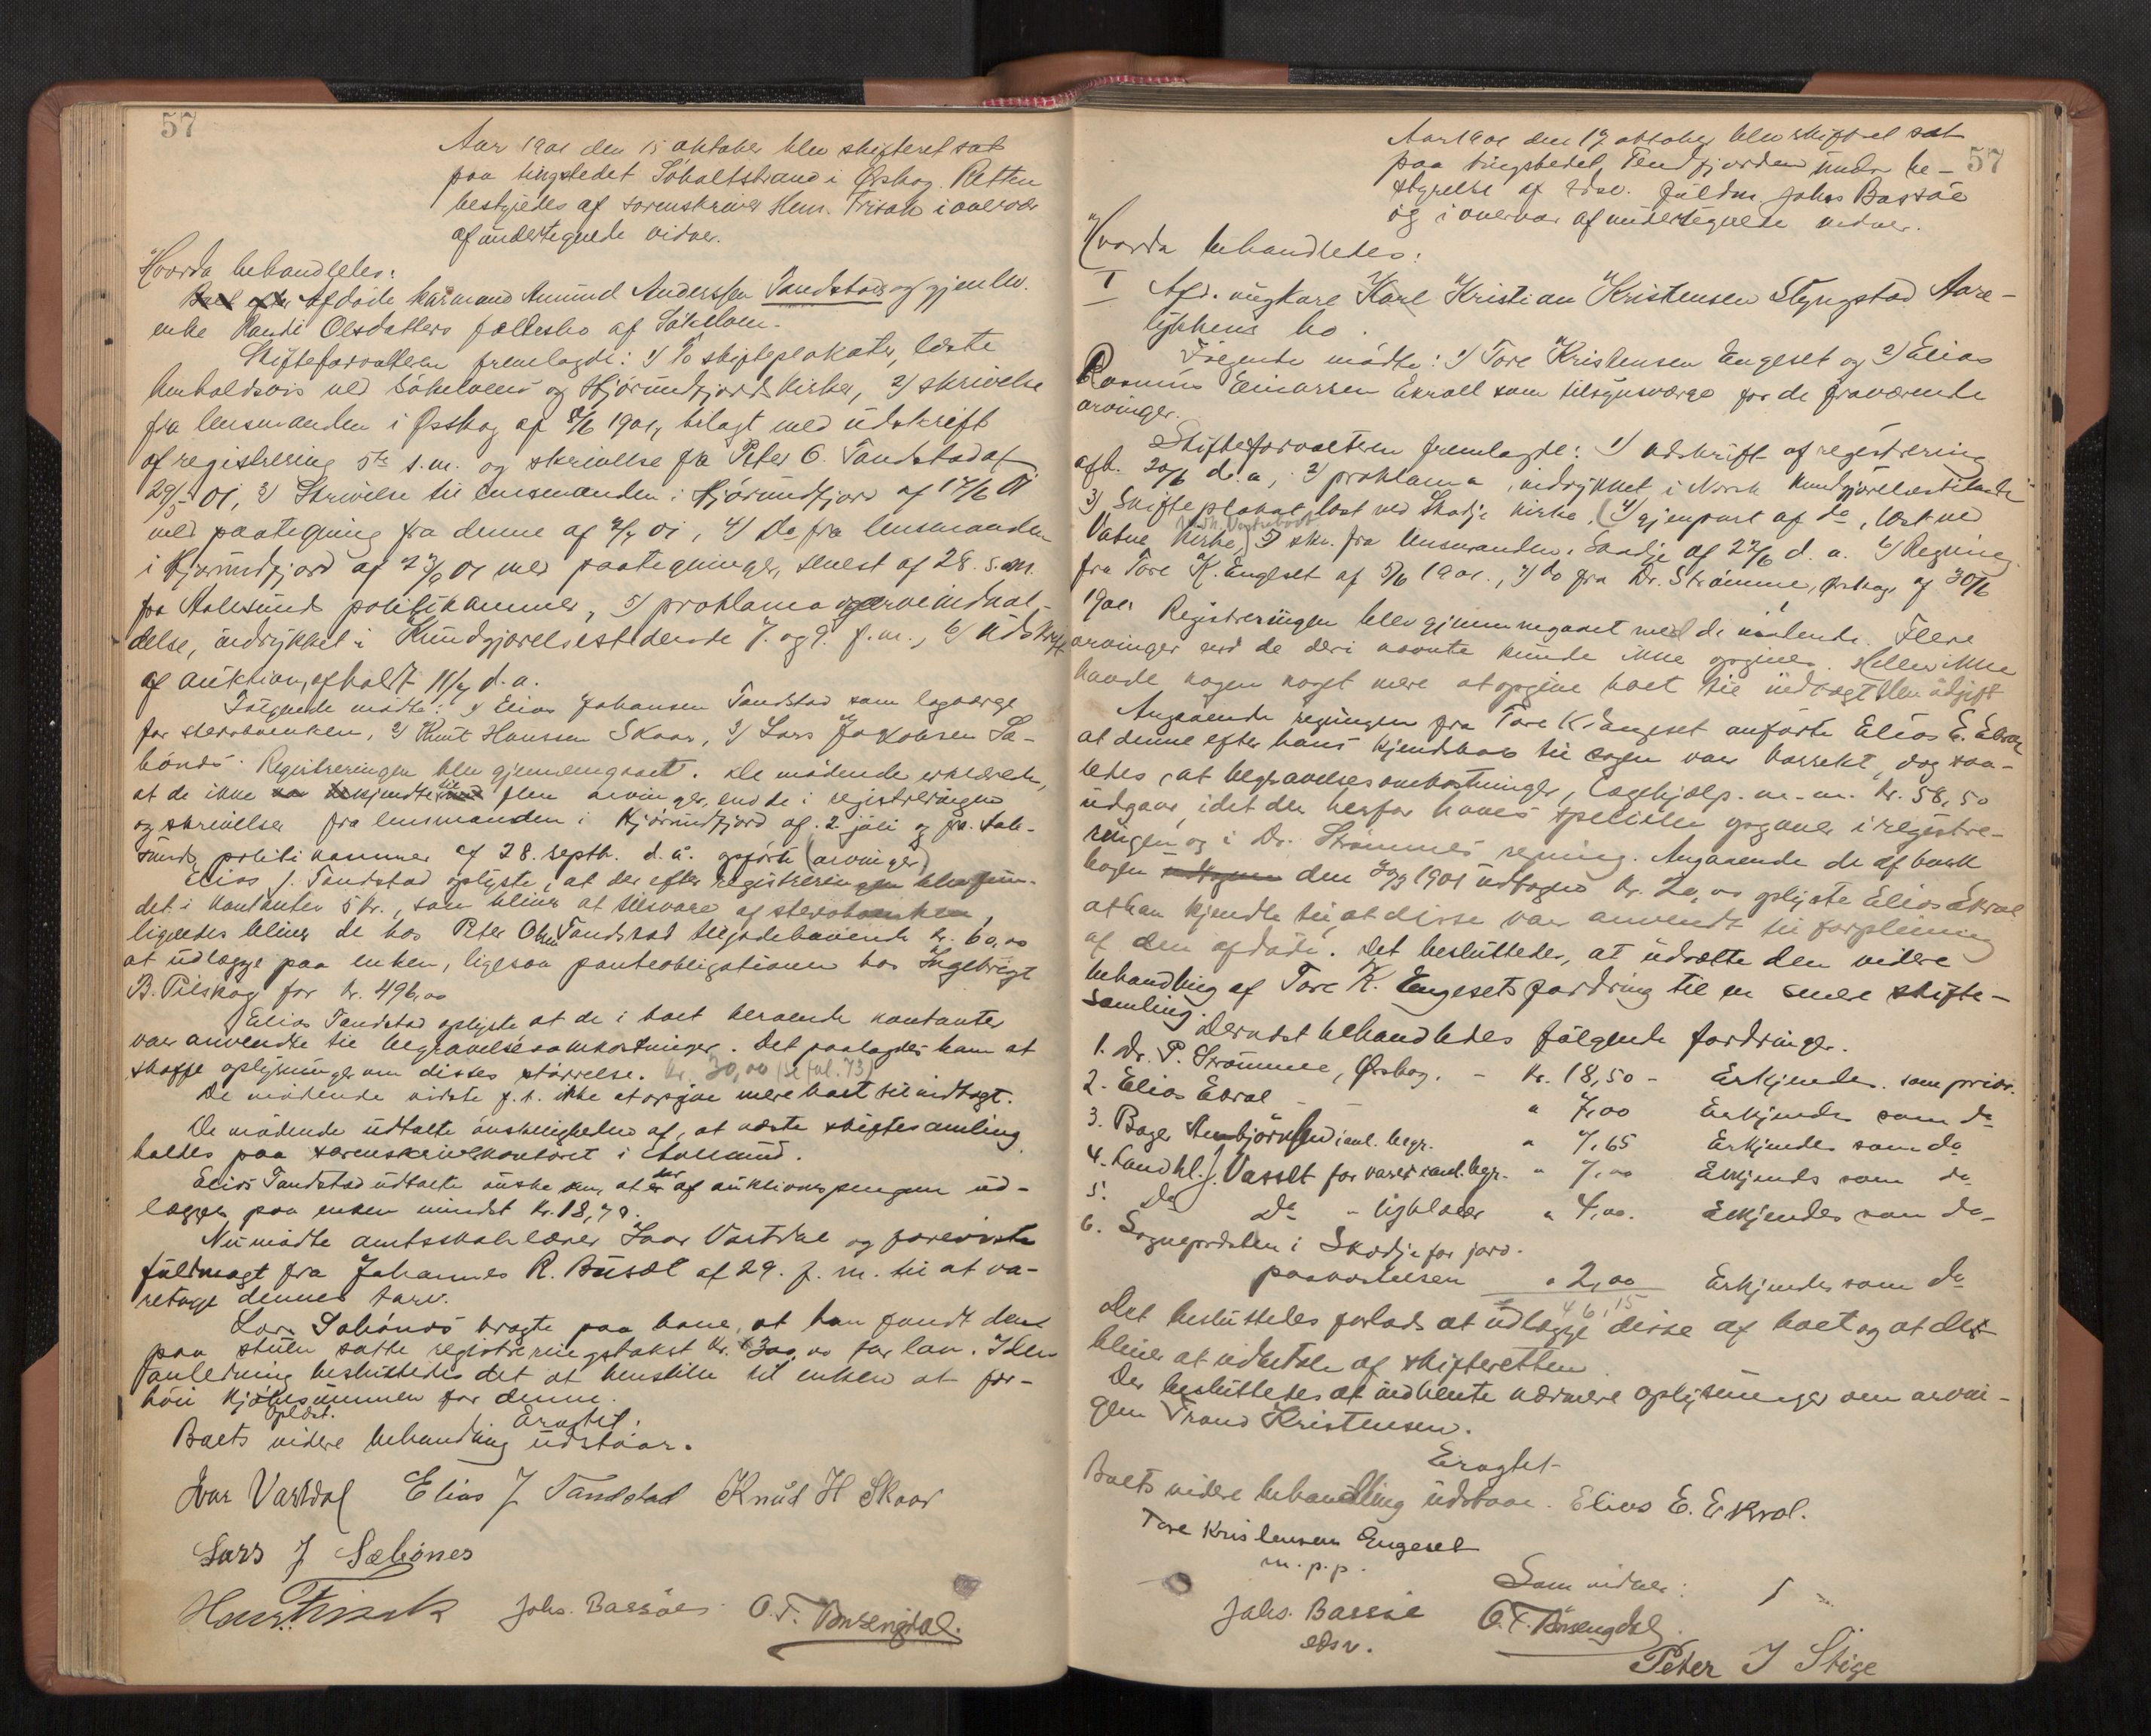 57
Aar 1901 den 15 oktober blev skifteret sat
paa tingstedet Söholtstrand i Ørskog. Retten
bestyredes af sorenskriver Henr. Finsch i overvær
af undertegnede vidner.
Hvorda behandledes:
Afdöde kaarmand Amund Anderssen Tandstad og gjenlev.
enke Olsdatters fællesbo af Sökelven.
Skifteforvalteren fremlagde: 1) To skifteplakater, læste
henholdsvis ved Sökelvens og Hjörundfjords kirker, 2) skrivelse
fra lensmanden i Ørskog af 8/6 1901, bilagt med udskrift
af registrering 5te s.m. og skrivelse fra Peter O. Tandstad af
29/5 01, 3) Skrivelse til lensmanden i Hjörundfjord af 17/6 01
med paategning fra denne af 2/7 01, 4) Do fra lensmanden
i Hjörundfjord af 23/9 01 med paategninger, senest af 28. s.m.
fra Aalesunds politikammer, 5) proklama og arveindkal-
delse, indrykket i Kundgjörelsestidende 7. og 9. f.m., 6) Udskrift
af auktion, afholdt 11/7 d.a.
Fölgende mödte: 1) Elias Johansen Tandstad som lagværge
for sterboenken, 2) Knut Hansen Skaar, 3) Lars Jakobsen Sæ-
bönes. Registreringen blev gjennemgaaet. De mödende erklærede,
at de ikke kjendte til flere arvinger, end de i registreringen
og skrivelser fra lensmanden i Hjörundfjord af 2 juli og fra Aale-
sunds politikammer af 28. septb. d.a. opförte (arvinger)
Elias J. Tandstad oplyste, at der efter registreringen blev fun-
det i kontanter 5 kr., som bliver at tilsvare af sterboenken,
ligeledes bliver de hos Peter Olsen Tandstad tilgodehavende kr. 60,00
at udlægge paa enken, ligesaa panteobligationen hos Ingebrigt
B. Pilskog for kr. 496,00
Elias Tandstad oplyste at de i boet beroende kontanter
var anvendte til begravelsesomkostninger. Det paalagdes ham at
skaffe oplysninger om disses störrelse. kr. 30,00 (se fol. 73)
De mödende vidste f.t. ikke at opgive mere boet til indtægt.
De mödende udtalte önskeligheden af, at næste skiftesamling
holdes paa sorenskriverkontoret i Aalesund.
Elias Tandstad udtalte önske om, at der af auktionspengene ud-
lægges paa enken mindst kr. 18,70.
Nu mödte amtsskolelærer Ivar Vartdal og foreviste
fuldmagt fra Johannes R. Busæt af 29. f.m. til at va-
retage dennes tarv.
Lars Sæbönes bragte paa bane, at han fandt den
paa stuen satte registreringstakst kr. 300,00 for lav. I den
anledning besluttedes det at henstille til enken at for-
höie kjöbesummen for denne.
Oplæst. Eragtet:
Boets videre behandling udstaar.
Ivar Vartdal Elias J Tandstad Knud H Skaar
Lars J Sæbönes
Henr. Finsch Johs. Bassöe O. T. Börsengdal.
57
Aar 1901 den 17 oktober blev skifteret sat
paa tingstedet, Tennfjorden under be-
styrelse af edsv. fuldm. Johs Bassöe
og i overvær af undertegnede vidner.
Hvorda behandledes:
I Afd. ungkare Karl Kristian Kristensen Slyngstad Aare-
lykkens bo.
Fölgende mödte: 1) Tore Kristensen Engeset og 2) Elias
Rasmus Einarsen Ekroll som tilsynsværge for de fraværende
arvinger.
Skifteforvalteren fremlagde: 1) Udskrift af registrering
afh. 20/6 d.a., 2) proklama, indrykket i Norsk kundgjörelsestidende
3) Skifteplakat læst ved Skodje kirke, (4) gjenpart af do, læst ved
Vatne kirke,) 5) skr. fra lensmanden i Skodje af 22/6 d.a. 6) Regning
fra Tore K. Engeset af 5/6 1901., 7) do fra Dr. Strömme, Ørskog af 30/6
1901.
Registreringen blev gjennemgaaet med de mödende. Flere
arvinger end de deri nævnte kunde ikke opgives. Heller ikke
havde nogen noget mere at opgive boet til indtægt eller udgift
Angaaende regningen fra Tore K. Engeset anförte Elias E. Ekrol
at denne efter hans kjendskab til sagen var korrekt, dog saa-
ledes, at begravelsesomkostninger, lægehjælp m.m. kr. 58,50
udgaar, idet der herfor haves specielle opgaver i registre-
ringen og i Dr. Strömmes regning. Angaaende de af bank-
bogen den 20/3 1901 udtagne kr. 20,00 oplyste Elias Ekrol
at han kjendte til, at disse var anvendt til forpleining
af den afdöde. Det besluttedes, at udsætte den videre
behandling af Tore K. Engesets fordring til en senere skifte-
samling.
Dernæst behandledes fölgende fordringer.
1. Dr. P. Strömme, Ørskog. - kr. 18,50 - Erkjendes som prior.
2. Elias Ekrol - - " 7,00 Erkjendes som do
3. Bager Asbjörnsen i anl. begr. " 7,65 Erkjendes som do
4. Landhl. J. Vasset for varer i anl. begr. " 7,00 Erkjendes som do
5. Do Do - ligklær " 4,00. Erkjendes som do
6. Sognepresten i Skodje for jord-
paakastelsen " 2,00 Erkjendes som do
46,15
Det besluttedes forlods at udlægge disse af boet og at det
bliver at udbetale af skifteretten.
Der besluttedes at indhente nærmere oplysninger om arvin-
gen Trond Kristensen.
Eragtet
Boets videre behandling udstaar. Elias E. Ekrol.
Tore Kristensen Engeset
m.p.p.
Som vidner:
Johs. Bassöe O. T. Börsengdal
edsv.
Peter J Stige